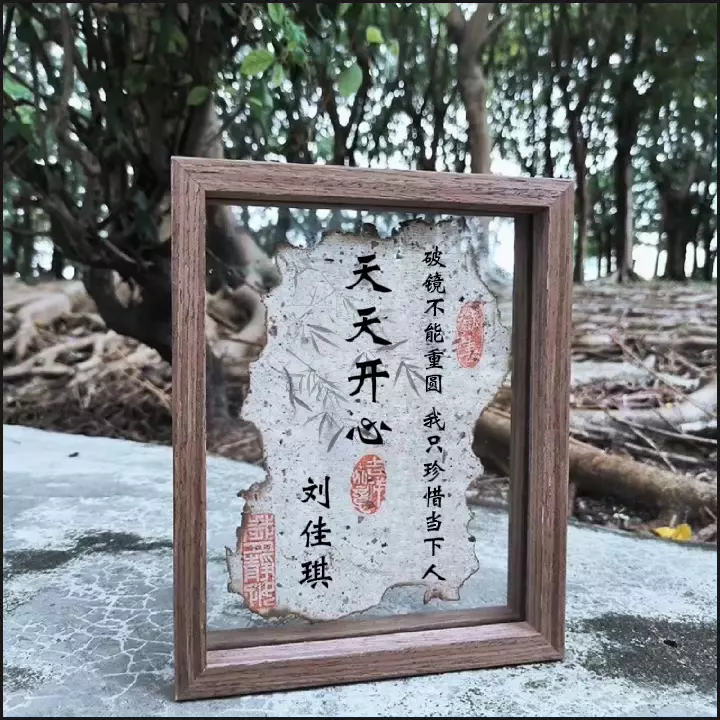 破镜不能重圆 我只珍惜当下人
天天开心
吉祥如意
刘佳琪